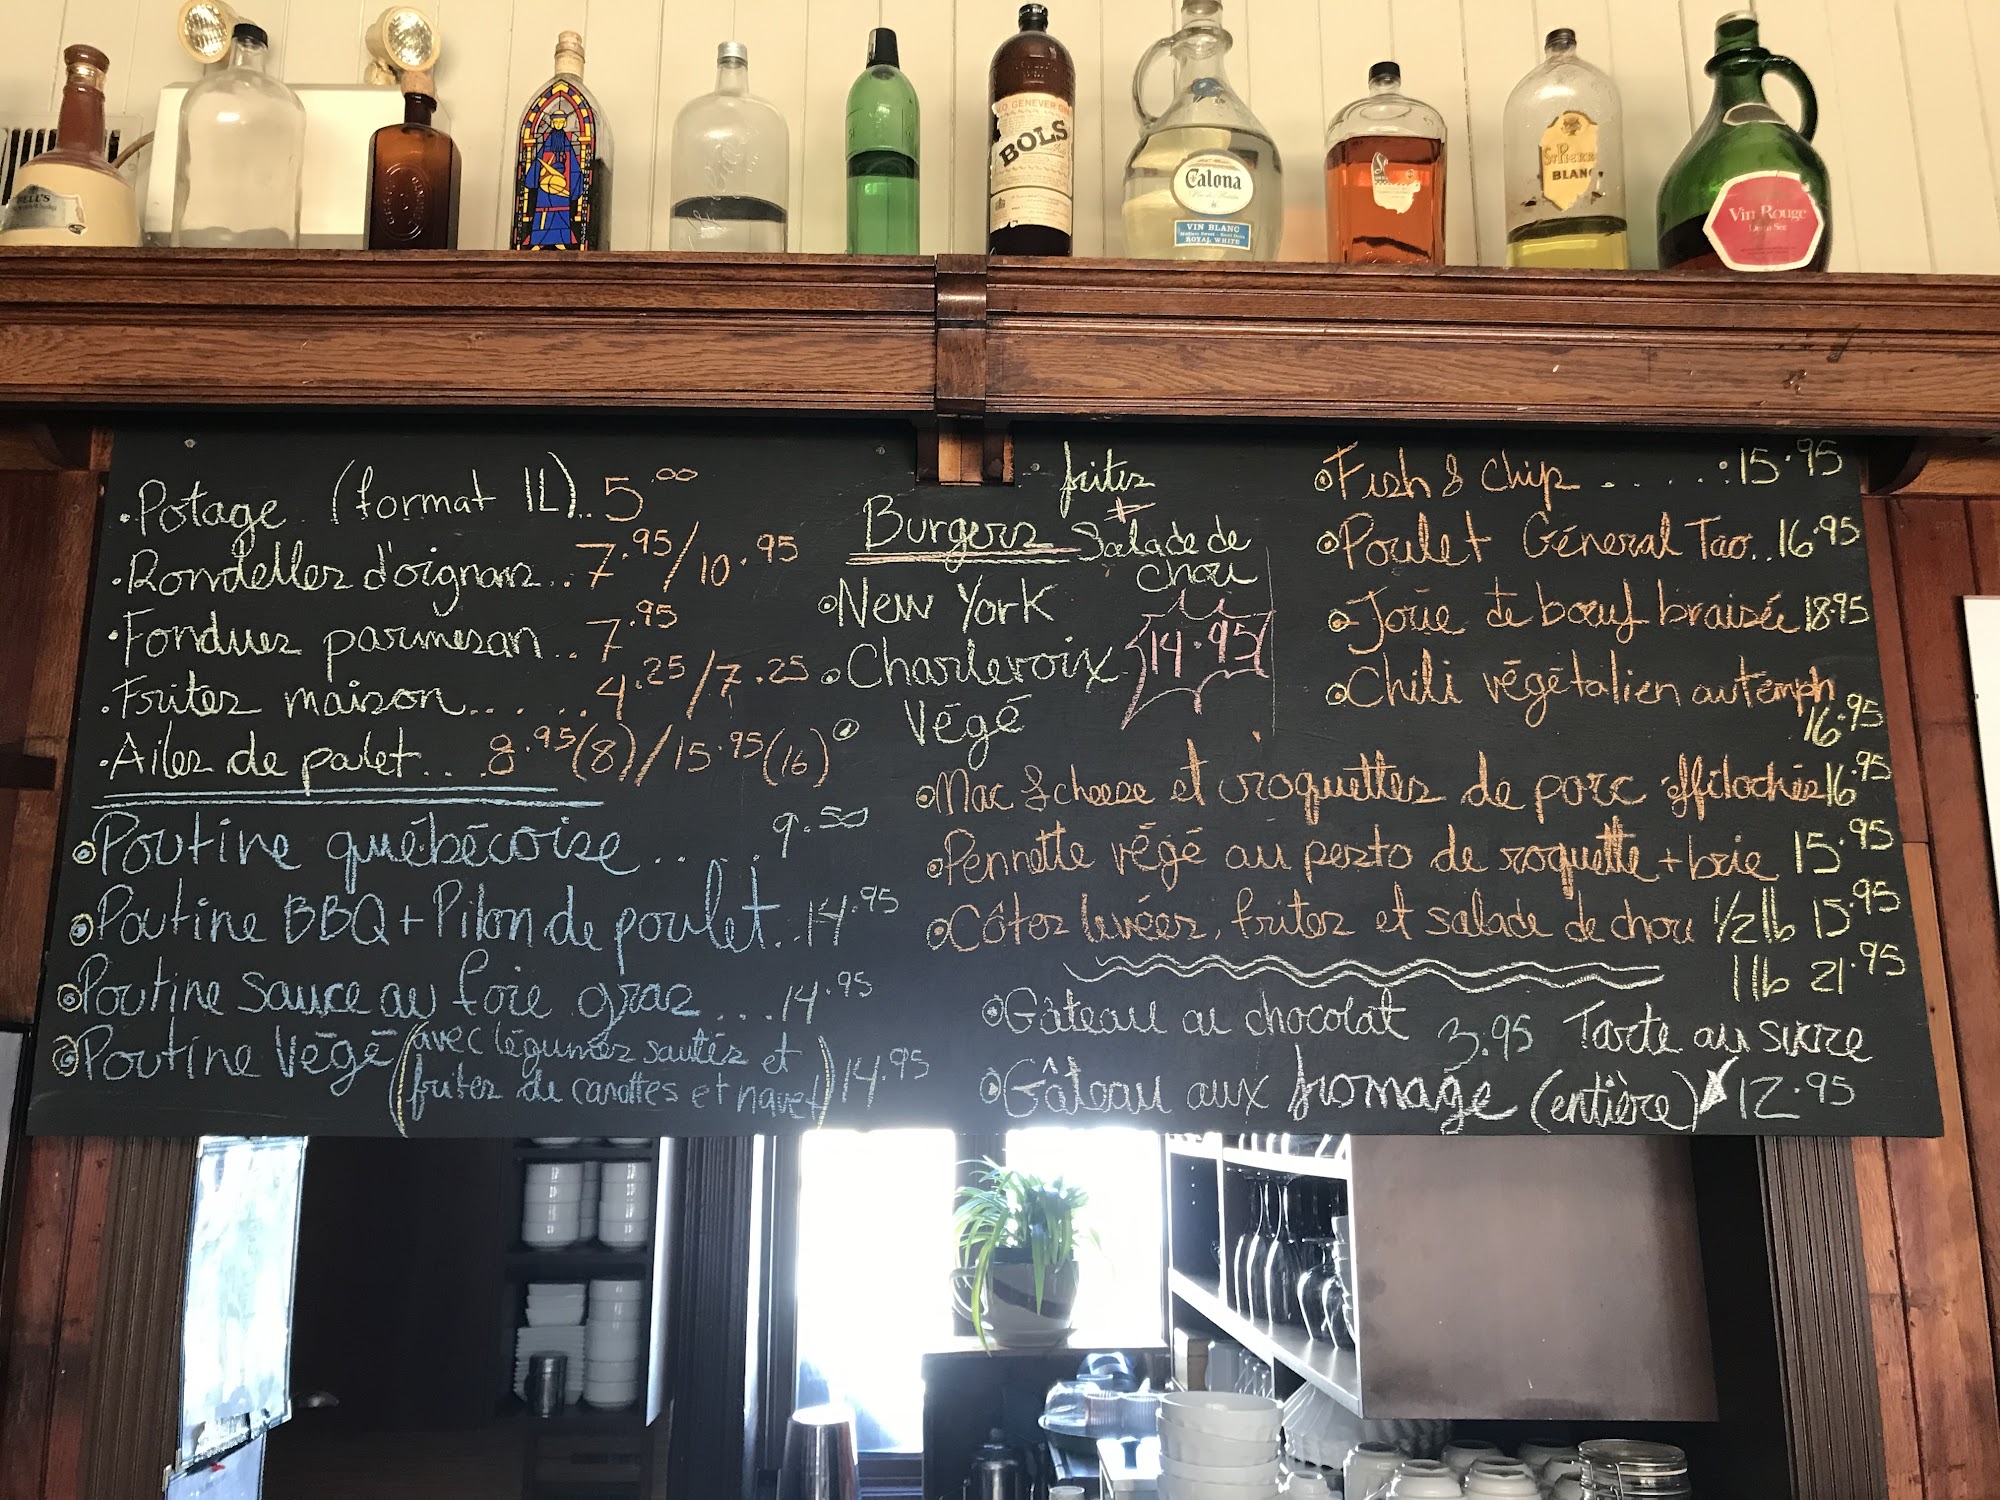 BELL'S
V.O. GENEVER
BOLS
Calona
VIN BLANC
ROYAL WHITE
St Pierre
BLANC
Vin Rouge
Demi Sec
•Potage (format 1L)..5.00
•Rondelles d'oignons..7.95/10.95
•Fondues parmesan..7.95
•Frites maison......4.25/7.25
•Ailes de poulet...8.95(8)/15.95(16)
Poutine québécoise....9.50
Poutine BBQ + Pilon de poulet..14.95
Poutine sauce au foie gras...14.95
Poutine Végé (avec légumes sautés et
frites de carottes et navet) 14.95
frites
+
Burgers Salade de
chou
New York
Charlevoix
14.95
Végé
Fish & Chip.....:15.95
Poulet Général Tao..16.95
Joue de bœuf braisée 18.95
Chili végétalien au temph
16.95
Mac & cheese et croquettes de porc effilochés 16.95
Pennette végé au pesto de roquette + brie 15.95
Côtes levées, frites et salade de chou 1/2lb 15.95
1lb 21.95
Gâteau au chocolat 3.95 Tarte au sucre
Gâteau aux fromage (entière) 12.95